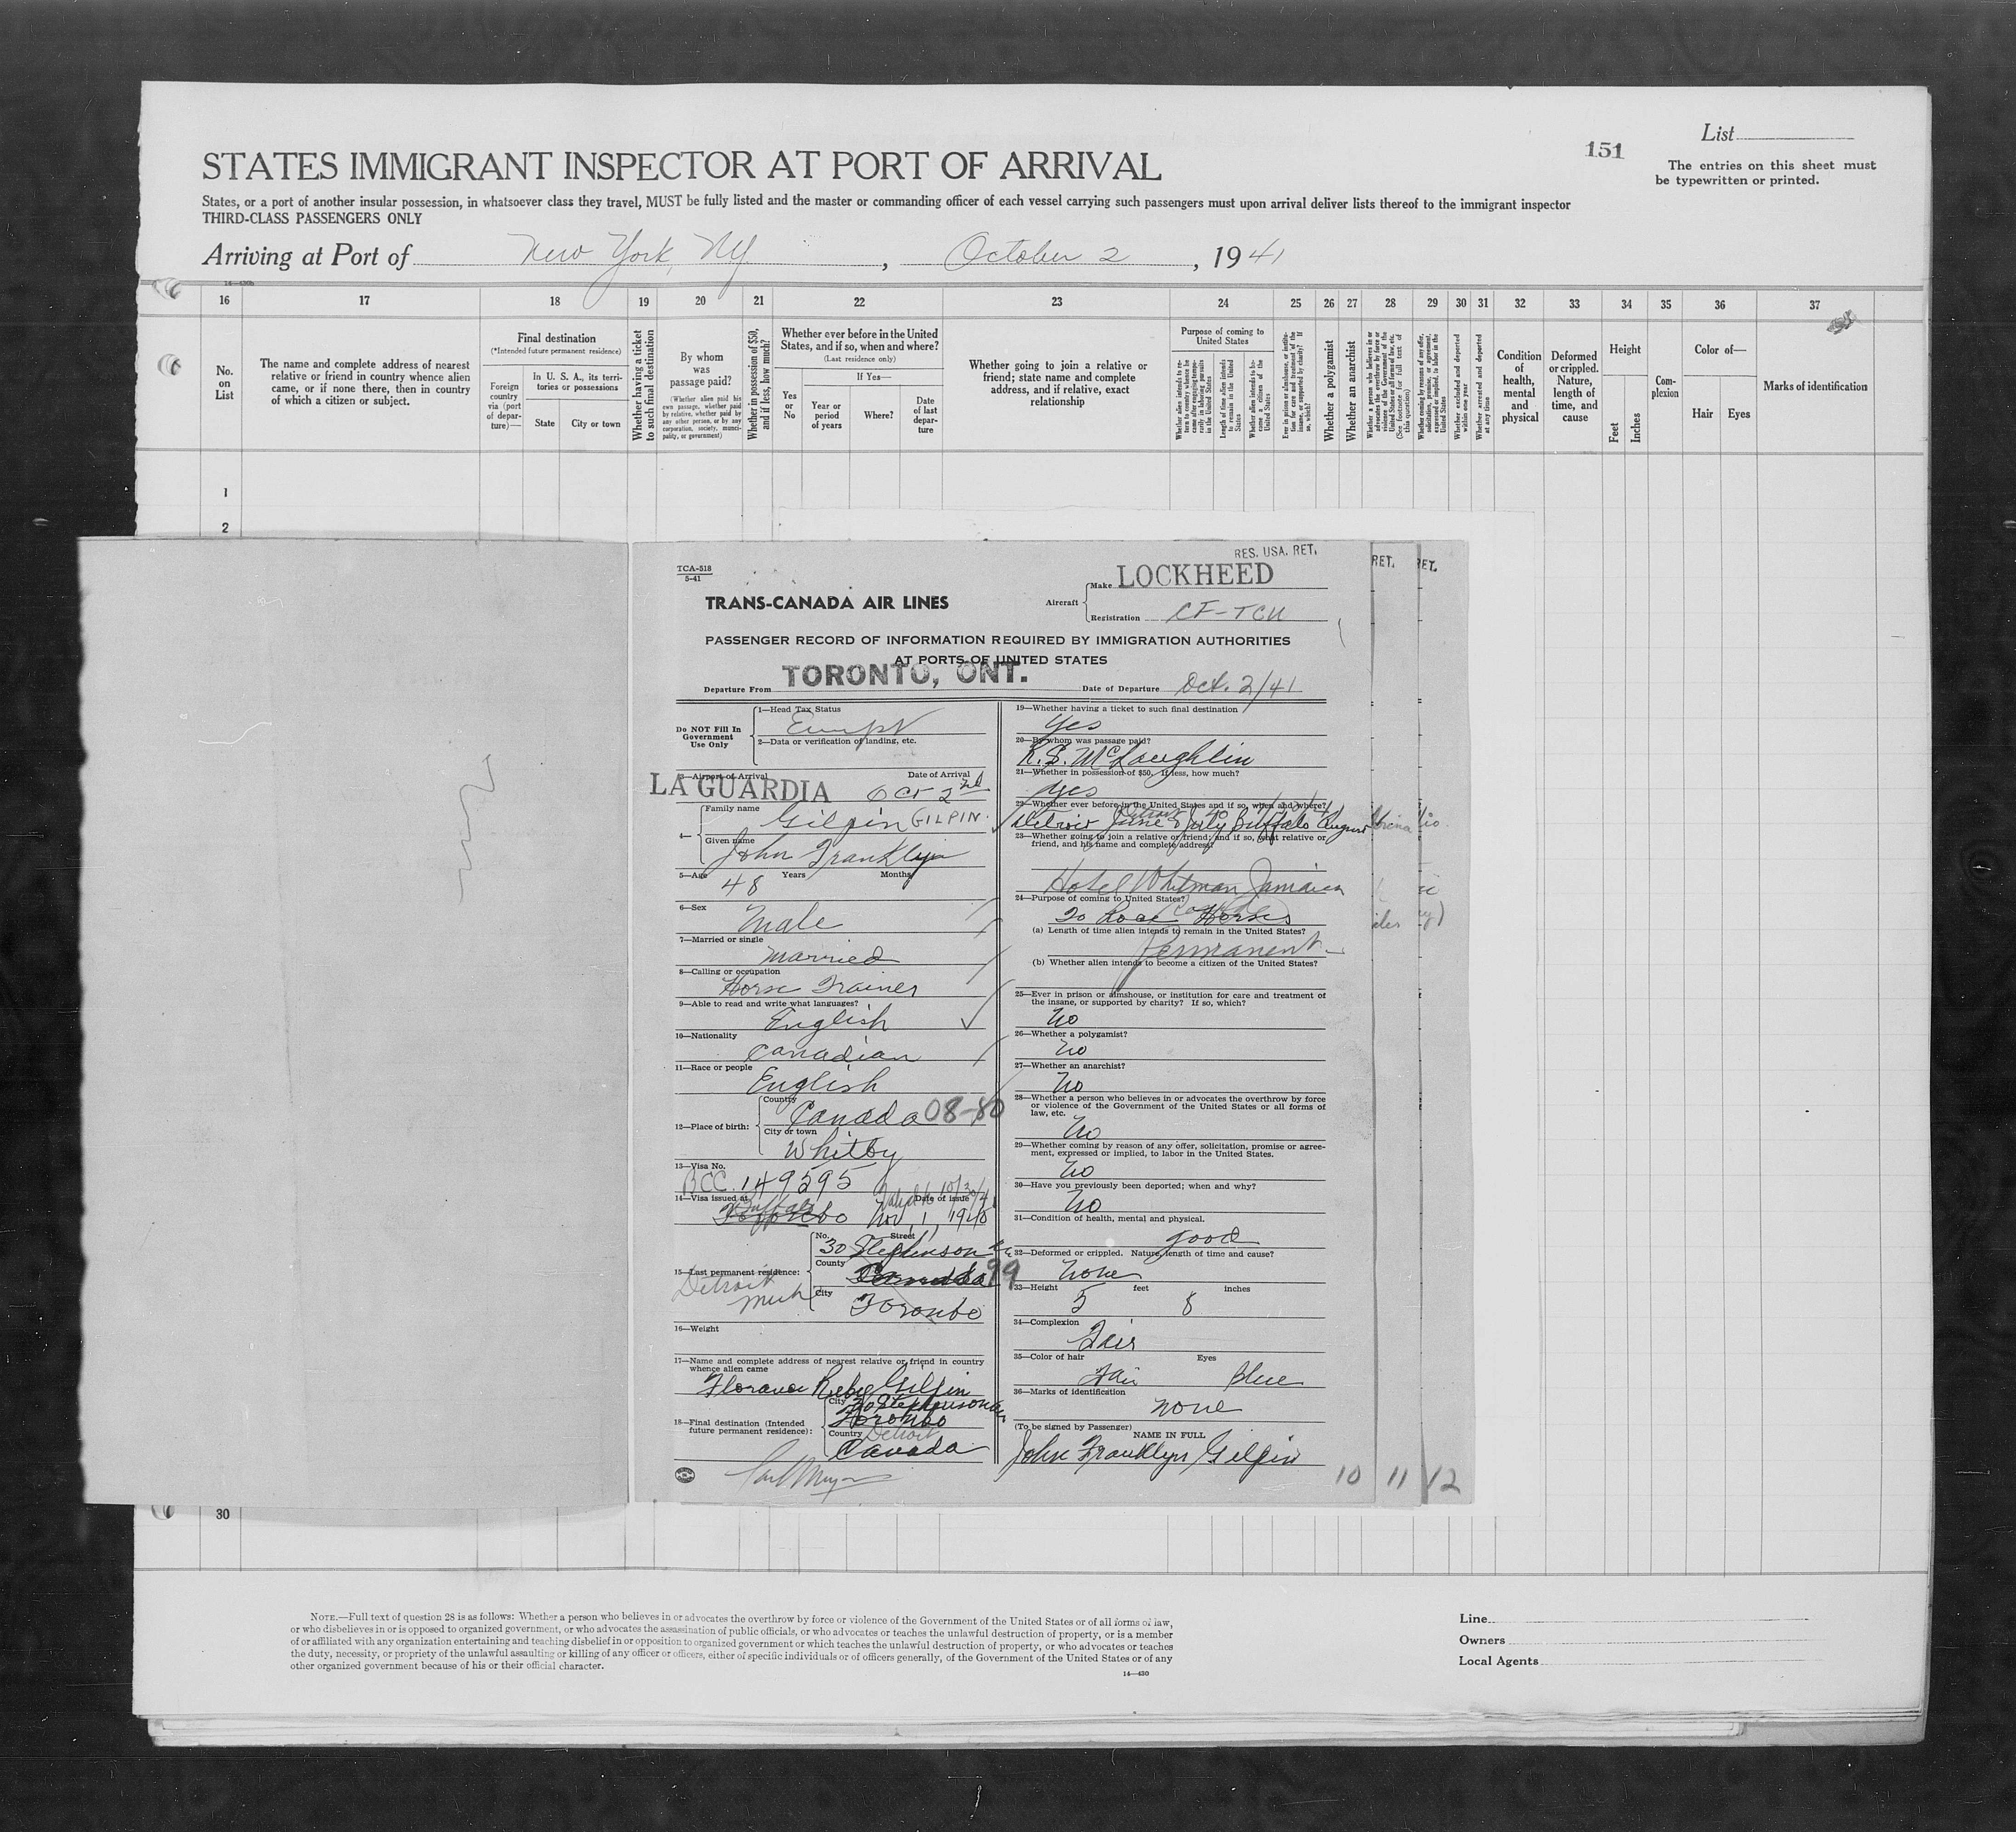 List
151
The entries on this sheet must
be typewritten or printed.
STATES IMMIGRANT INSPECTOR AT PORT OF ARRIVAL
States, or a port of another insular possession, in whatsoever class they travel, MUST be fully listed and the master or commanding officer of each vessel carrying such passengers must upon arrival deliver lists thereof to the immigrant inspector
THIRD-CLASS PASSENGERS ONLY
Arriving at Port of New York, NY, October 2, 1941
16 17 18 19 20 21 22 23 24 25 26 27 28 29 30 31 32 33 34 35 36 37
No.
on
List
The name and complete address of nearest
relative or friend in country whence alien
came, or if none there, then in country
of which a citizen or subject.
Final destination
(*Intended future permanent residence)
Foreign
country
via (port
of depar-
ture)—
In U. S. A., its terri-
tories or possessions
State
City or town
Whether having a ticket
to such final destination
By whom
was
passage paid?
(Whether alien paid his
own passage, whether paid
by relative, whether paid by
any other person, or by any
corporation, society, munici-
pality, or government)
Whether in possession of $50,
and if less, how much?
Whether ever before in the United
States, and if so, when and where?
(Last residence only)
Yes
or
No
If Yes—
Year or
period
of years
Where?
Date
of last
depar-
ture
Whether going to join a relative or
friend; state name and complete
address, and if relative, exact
relationship
Purpose of coming to
United States
Length of time alien intends
to remain in the United
States
Whether alien intends to be-
come a citizen of the
United States
Whether a polygamist
Whether an anarchist
Whether excluded and deported
within one year
Whether arrested and deported
at any time
Condition
of
health,
mental
and
physical
Deformed
or crippled.
Nature,
length of
time, and
cause
Height
Feet
Inches
Com-
plexion
Color of—
Hair
Eyes
Marks of identification
1
2
RES. USA. RET.
RET.
RET.
TCA-518
5-41
TRANS-CANADA AIR LINES
Aircraft
Make LOCKHEED
Registration CF-TCU
PASSENGER RECORD OF INFORMATION REQUIRED BY IMMIGRATION AUTHORITIES
AT PORTS OF UNITED STATES
Departure From TORONTO, ONT.
Date of Departure Oct. 2/41
Do NOT Fill In
Government
Use Only
1—Head Tax Status
2—Data or verification of landing, etc.
3—Airport of Arrival
Date of Arrival
LA GUARDIA Oct 2nd
4—
Family name
Gilpin GILPIN.
Given name
John Franklyn
5—Age 48 Years Months
6—Sex
Male
7—Married or single
Married
8—Calling or occupation
Horse Trainer
9—Able to read and write what languages?
English
10—Nationality
Canadian
11—Race or people
English
12—Place of birth:
Country
Canada 08-80
City or town
Whitby
13—Visa No.
BCC. 149595
14—Visa issued at Date of issue
Buffalo
Toronto Nov, 1, 1940
15—Last permanent residence:
No. Street
30 Stephenson Av
County
Canada 99
City
Toronto
Detroit
Mich
16—Weight
17—Name and complete address of nearest relative or friend in country
whence alien came
Ruby Gilpin
30 Stephenson Av
18—Final destination (Intended
future permanent residence):
City
Toronto
Country Detroit
Canada
19—Whether having a ticket to such final destination
Yes
20—By whom was passage paid?
R. S. McLaughlin
21—Whether in possession of $50. If less, how much?
Yes
22—Whether ever before in the United States and if so, when and where?
Detroit June & July Buffalo August
23—Whether going to join a relative or friend; and if so, what relative or
friend, and his name and complete address?
Hotel Whitman Jamaica
24—Purpose of coming to United States?
To Race Horses
(a) Length of time alien intends to remain in the United States?
Permanent
(b) Whether alien intends to become a citizen of the United States?
25—Ever in prison or almshouse, or institution for care and treatment of
the insane, or supported by charity? If so, which?
No
26—Whether a polygamist?
No
27—Whether an anarchist?
No
28—Whether a person who believes in or advocates the overthrow by force
or violence of the Government of the United States or all forms of
law, etc.
No
29—Whether coming by reason of any offer, solicitation, promise or agree-
ment, expressed or implied, to labor in the United States.
No
30—Have you previously been deported; when and why?
No
31—Condition of health, mental and physical.
good
32—Deformed or crippled. Nature, length of time and cause?
None
33—Height feet inches
5 8
34—Complexion
Fair
35—Color of hair Eyes
Fair Blue
36—Marks of identification
none
(To be signed by Passenger)
NAME IN FULL
John Franklyn Gilpin
10 11 12
30
NOTE.—Full text of question 28 is as follows: Whether a person who believes in or advocates the overthrow by force or violence of the Government of the United States or of all forms of law,
or who disbelieves in or is opposed to organized government, or who advocates the assassination of public officials, or who advocates or teaches the unlawful destruction of property, or is a member
of or affiliated with any organization entertaining and teaching disbelief in or opposition to organized government or which teaches the unlawful destruction of property, or who advocates or teaches
the duty, necessity, or propriety of the unlawful assaulting or killing of any officer or officers, either of specific individuals or of officers generally, of the Government of the United States or of any
other organized government because of his or their official character.
14—430
Line
Owners
Local Agents